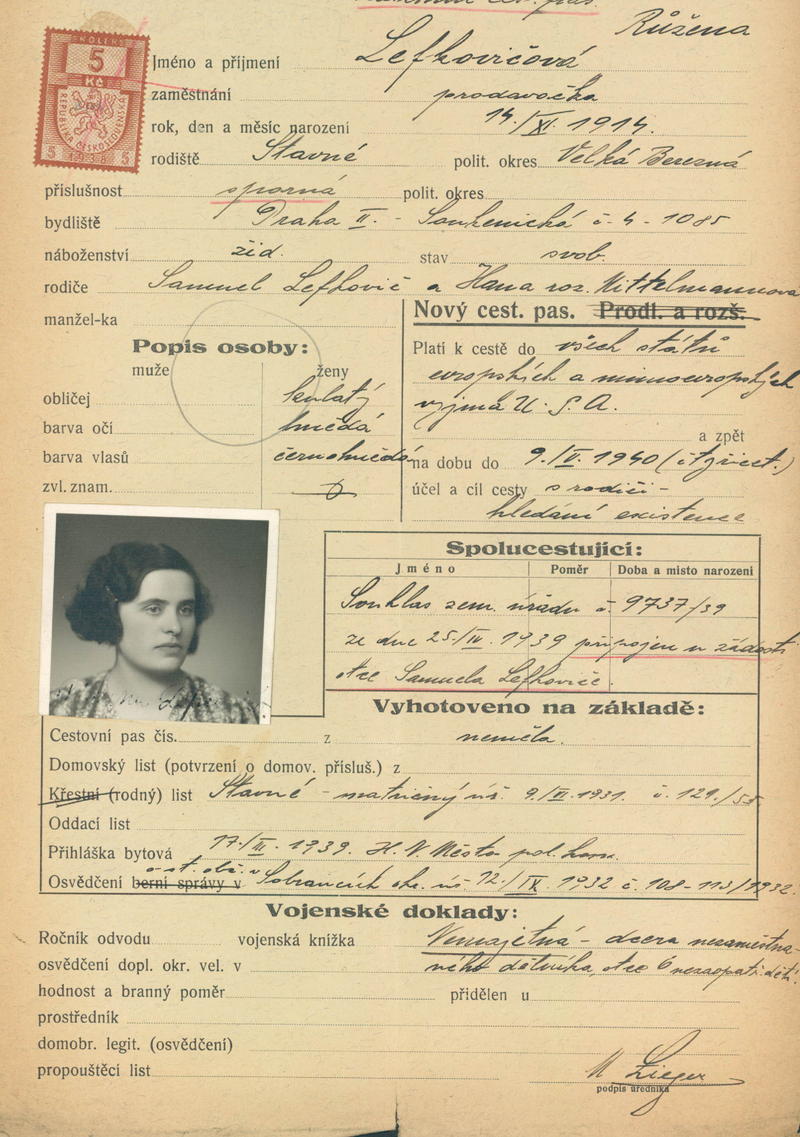 čsl. pas.
Růžena
Jméno a příjmení Lefkovičová
zaměstnání prodavačka
rok, den a měsíc narození 14/XI. 1914.
rodiště Stavné polit. okres Velká Berezná
příslušnost sporná polit. okres
bydliště Praha II. - Soukenická č. 4 - 1085
náboženství žid. stav svob.
rodiče Samuel Lefkovič a Hana roz. Mittelmannová
manžel-ka
KOLEK
5
Kč
REPUBLIKA ČESKOSLOVENSKÁ
5 1938 5
Popis osoby:
muže ženy
obličej kulatý
barva očí hnědá
barva vlasů černohnědá
zvl. znam.
Nový cest. pas. Prodl. a rozš.
Platí k cestě do všech států
evropských a mimoevropských
vyjma U. S. A.
a zpět
na dobu do 9./V. 1940 (čtyřicet.)
účel a cíl cesty s rodiči -
hledání existence
Spolucestující:
Jméno Poměr Doba a misto narozeni
Souhlas zem. úřadu č. 9737/39
ze dne 25/IV. 1939 připojen u žádosti
otce Samuela Lefkoviče.
Vyhotoveno na základě:
Cestovní pas čís. z neměla.
Domovský list (potvrzení o domov. přísluš.) z
Křestní (rodný) list Stavné - matričný úř. 9/VI. 1931. č. 129/55
Oddací list
Přihláška bytová 17/III. 1939. H. V. Město pol. kom.
o st. obč. v
Osvědčení berní správy v Sobrancích okr. úř. 12./IX. 1932 č. 108-113/1932.
Vojenské doklady:
Ročník odvodu vojenská knížka Nemajetná - dcera nezaměstna-
osvědčení dopl. okr. vel. v ného dělníka, otce 6 nezaopatř. dětí.
hodnost a branný poměr přidělen u
prostředník
domobr. legit. (osvědčení)
propouštěcí list
podpis úředníka